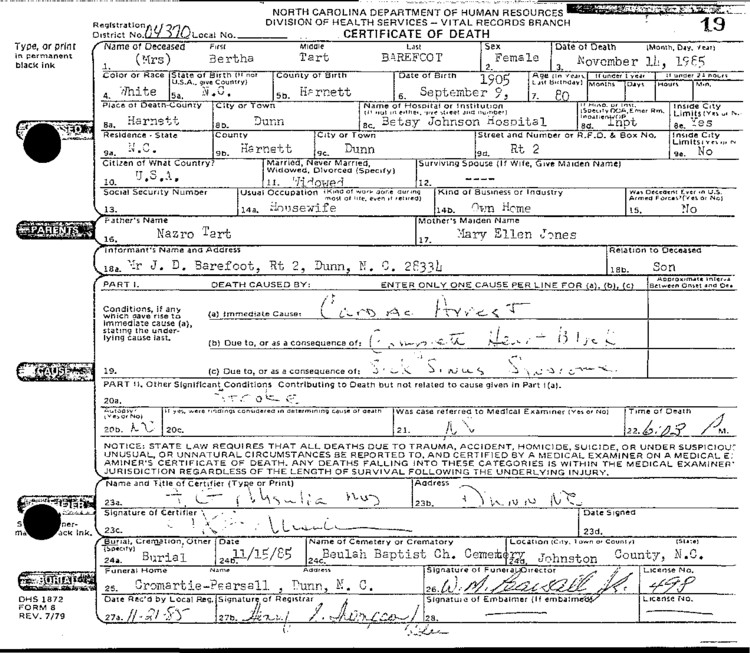 NORTH CAROLINA DEPARTMENT OF HUMAN RESOURCES
DIVISION OF HEALTH SERVICES - VITAL RECORDS BRANCH
CERTIFICATE OF DEATH
19
Registration District No. 04370 Local No.
Type, or print in permanent black ink
Name of Deceased First Middle Last Sex Date of Death (Month, Day, Year)
1. (Mrs) Bertha Tart BAREFOOT 2. Female 3. November 14, 1985
Color or Race State of Birth (If not U.S.A., give Country) County of Birth Date of Birth Age (In Years Last Birthday) If under 1 year Months Days If under 24 hours Hours Min.
4. White 5a. N.C. 5b. Harnett 6. September 9, 1905 7. 80
Place of Death-County City or Town Name of Hospital or Institution (If not in either, give street and number) If Hosp. or Inst. (Specify DOA, Emer Rm. Inpatient/OP Inside City Limits (Yes or N
8a. Harnett 8b. Dunn 8c. Betsy Johnson Hospital 8d. Inpt 8e. Yes
Residence - State County City or Town Street and Number or R.F.D. & Box No. Inside City Limits (Yes or N
9a. N.C. 9b. Harnett 9c. Dunn 9d. Rt 2 9e. No
Citizen of What Country? Married, Never Married, Widowed, Divorced (Specify) Surviving Spouse (If Wife, Give Maiden Name)
10. U.S.A. 11. Widowed 12. ----
Social Security Number Usual Occupation (Kind of work done during most of life, even if retired) Kind of Business or Industry Was Decedent Ever in U.S. Armed Forces? (Yes or No)
13. 14a. Housewife 14b. Own Home 15. No
PARENTS
Father's Name Mother's Maiden Name
16. Nazro Tart 17. Mary Ellen Jones
Informant's Name and Address Relation to Deceased
18a. Mr J. D. Barefoot, Rt 2, Dunn, N. C. 28334 18b. Son
PART I. DEATH CAUSED BY: ENTER ONLY ONE CAUSE PER LINE FOR (a), (b), (c) Approximate Interva Between Onset and Dea
Conditions, if any which gave rise to immediate cause (a), stating the underlying cause last.
(a) Immediate Cause: Cardiac Arrest
(b) Due to, or as a consequence of: Complete Heart Block
CAUSE
19. (c) Due to, or as a consequence of: Sick Sinus Syndrome
PART II, Other Significant Conditions Contributing to Death but not related to cause given in Part I(a).
20a. Stroke
Autopsy (Yes or No) If yes, were findings considered in determining cause of death Was case referred to Medical Examiner (Yes or No) Time of Death
20b. No 20c. 21. No 22. 6:08 P M.
NOTICE: STATE LAW REQUIRES THAT ALL DEATHS DUE TO TRAUMA, ACCIDENT, HOMICIDE, SUICIDE, OR UNDER SUSPICIOU
UNUSUAL, OR UNNATURAL CIRCUMSTANCES BE REPORTED TO, AND CERTIFIED BY A MEDICAL EXAMINER ON A MEDICAL E
AMINER'S CERTIFICATE OF DEATH. ANY DEATHS FALLING INTO THESE CATEGORIES IS WITHIN THE MEDICAL EXAMINER'
JURISDICTION REGARDLESS OF THE LENGTH OF SURVIVAL FOLLOWING THE UNDERLYING INJURY.
Name and Title of Certifier (Type or Print) Address
23a. 23b. Dunn NC
Signature of Certifier Date Signed
23c. 23d.
ack ink.
Burial, Cremation, Other (Specify) Date Name of Cemetery or Crematory Location (City, Town or County) (State)
24a. Burial 24b. 11/15/85 24c. Beulah Baptist Ch. Cemetery 24d. Johnston County, N.C.
BURIAL
Funeral Home Name Address Signature of Funeral Director License No.
25. Cromartie-Pearsall, Dunn, N. C. 26. W. M. Pearsall Jr. 498
DHS 1872
FORM 8
REV. 7/79
Date Rec'd by Local Reg. Signature of Registrar Signature of Embalmer (If embalmed) License No.
27a. 11-21-85 27b. 28.